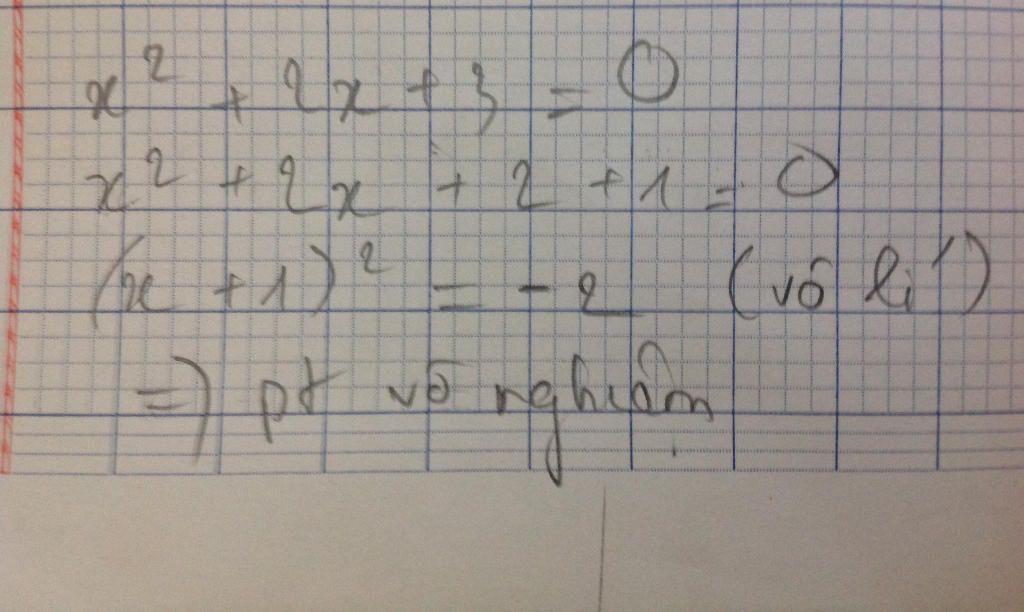 x² + 2x + 3 = 0
x² + 2x + 2 + 1 = 0
(x + 1)² = -2 (vô lí)
=> pt vô nghiệm